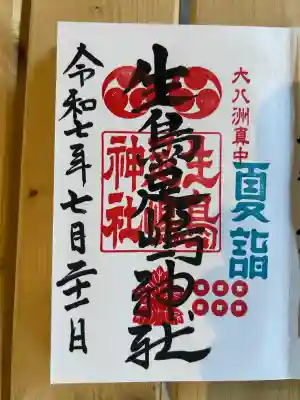 大八洲真中
夏詣
生島足嶋神社
生島
神社
令和七年七月二十一日